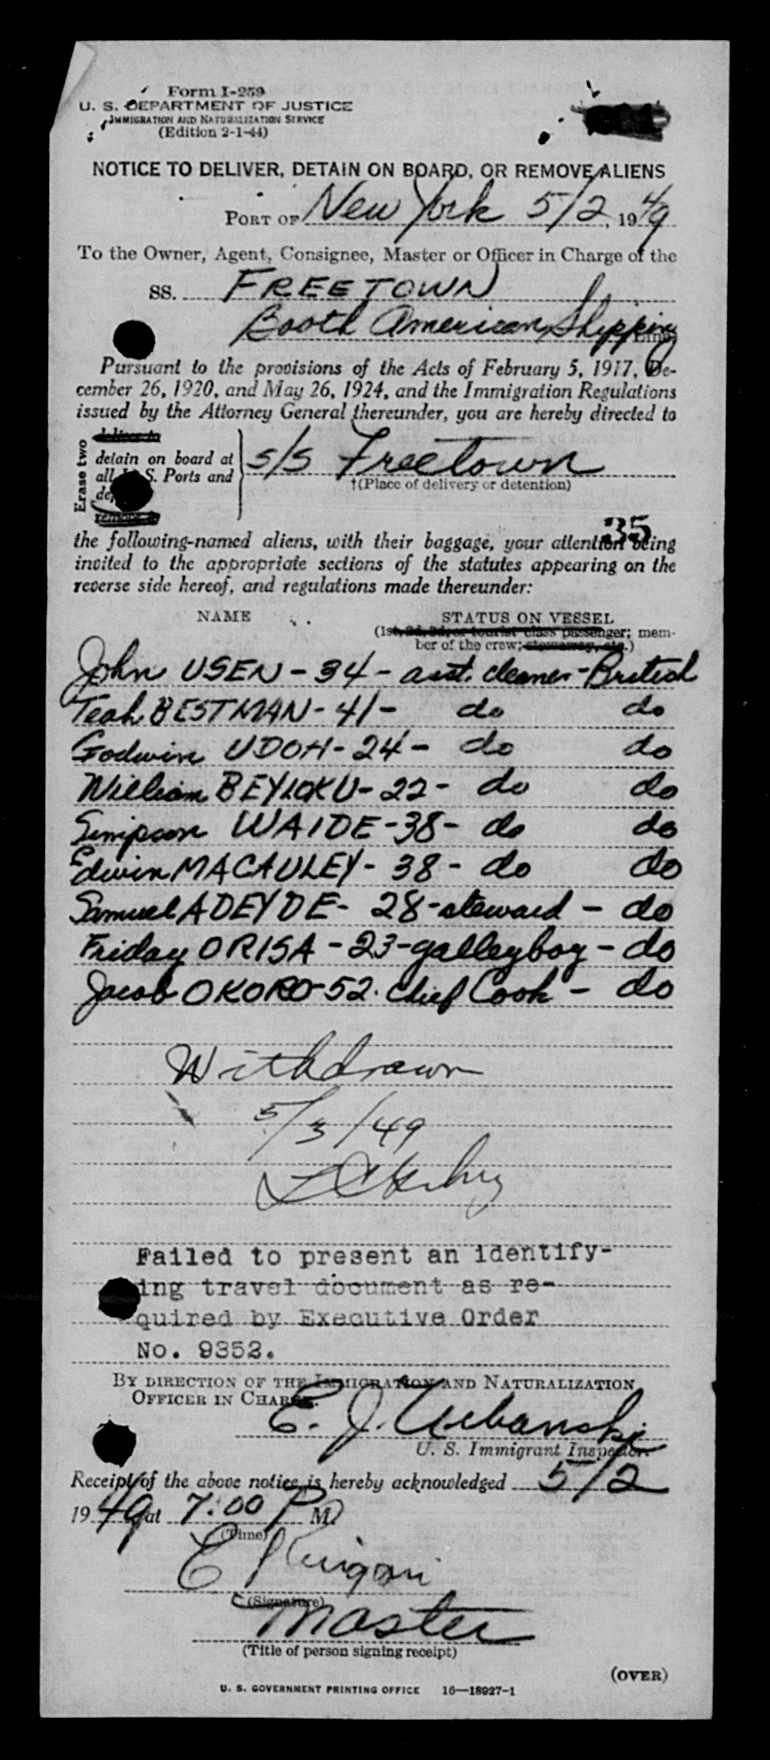 Form I-259
U. S. DEPARTMENT OF JUSTICE
IMMIGRATION AND NATURALIZATION SERVICE
(Edition 2-1-44)
NOTICE TO DELIVER, DETAIN ON BOARD, OR REMOVE ALIENS
PORT OF New York 5/2, 1949
To the Owner, Agent, Consignee, Master or Officer in Charge of the
SS. FREETOWN
Booth American Shipping Line
Pursuant to the provisions of the Acts of February 5, 1917, De-
cember 26, 1920, and May 26, 1924, and the Immigration Regulations
issued by the Attorney General thereunder, you are hereby directed to
Erase two
deliver to
detain on board at s/s Freetown
all U. S. Ports and
†(Place of delivery or detention)
remove to
35
the following-named aliens, with their baggage, your attention being
invited to the appropriate sections of the statutes appearing on the
reverse side hereof, and regulations made thereunder:
NAME STATUS ON VESSEL
(1st, 2d, 3d, or tourist class passenger; mem-
ber of the crew; stowaway, etc.)
John USEN - 34 - asst. cleaner - British
Teah BESTMAN - 41 - do do
Godwin UDOH - 24 - do do
William BEYIOKU - 22 - do do
Simpson WAIDE - 38 - do do
Edwin MACAULEY - 38 - do do
Samuel ADEYDE - 28 - steward - do
Friday ORISA - 23 - galleyboy - do
Jacob OKORO - 52. Chief Cook - do
Withdrawn
5/3/49
Failed to present an identify-
ing travel document as re-
quired by Executive Order
No. 9352.
BY DIRECTION OF THE IMMIGRATION AND NATURALIZATION
OFFICER IN CHARGE.
E. J. Urbanski
U. S. Immigrant Inspector.
Receipt of the above notice is hereby acknowledged 5/2
1949 at 7:00 P M.
(Time)
(Signature)
Master
(Title of person signing receipt)
(OVER)
U. S. GOVERNMENT PRINTING OFFICE 16—18927-1